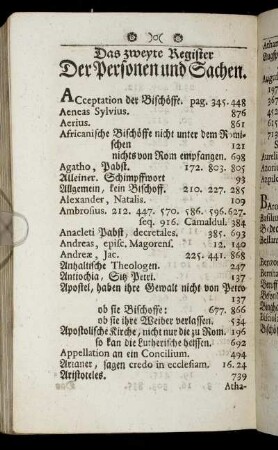 Das zweyte Register
Der Personen und Sachen.
ACceptation der Bischöffe. pag. 345. 448
Aeneas Sylvius. 876
Aerius. 861
Africanische Bischöffe nicht unter dem Römi-
schen 121
nichts von Rom empfangen. 698
Agatho, Pabst. 172. 803. 805
Alleiner. Schimpffwort 93
Allgemein, kein Bischoff. 210. 227. 285
Alexander, Natalis. 109
Ambrosius. 212. 447. 570. 586. 596. 627.
seq. 916. Camaldul. 384
Anacleti Pabst, decretales. 385. 693
Andreas, episc. Magorens. 12. 140
Andreæ, Jac. 225. 441. 868
Anhaltische Theologen. 247
Antiochia, Sitz Petri. 137
Apostel, haben ihre Gewalt nicht von Petro
137
ob sie Bischoffe: 677. 866
ob sie ihre Weiber verlassen. 534
Apostolische Kirche, nicht nur die zu Rom. 196
so kan die Lutherische heissen. 692
Appellation an ein Concilium. 494
Arianer, sagen credo in ecclesiam. 16. 24
Aristoteles. 739
Atha-